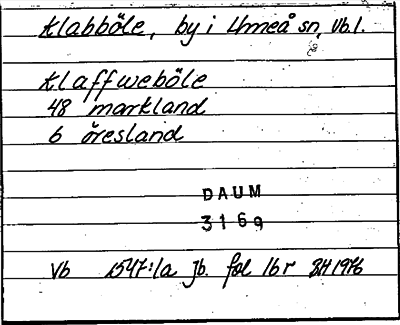 Klabböle, by i Umeå sn, Vb.l.
Klaffweböle
48 markland
6 öresland
DAUM
3169
Vb 1547:1a Jb. fol 16 r BH 1976